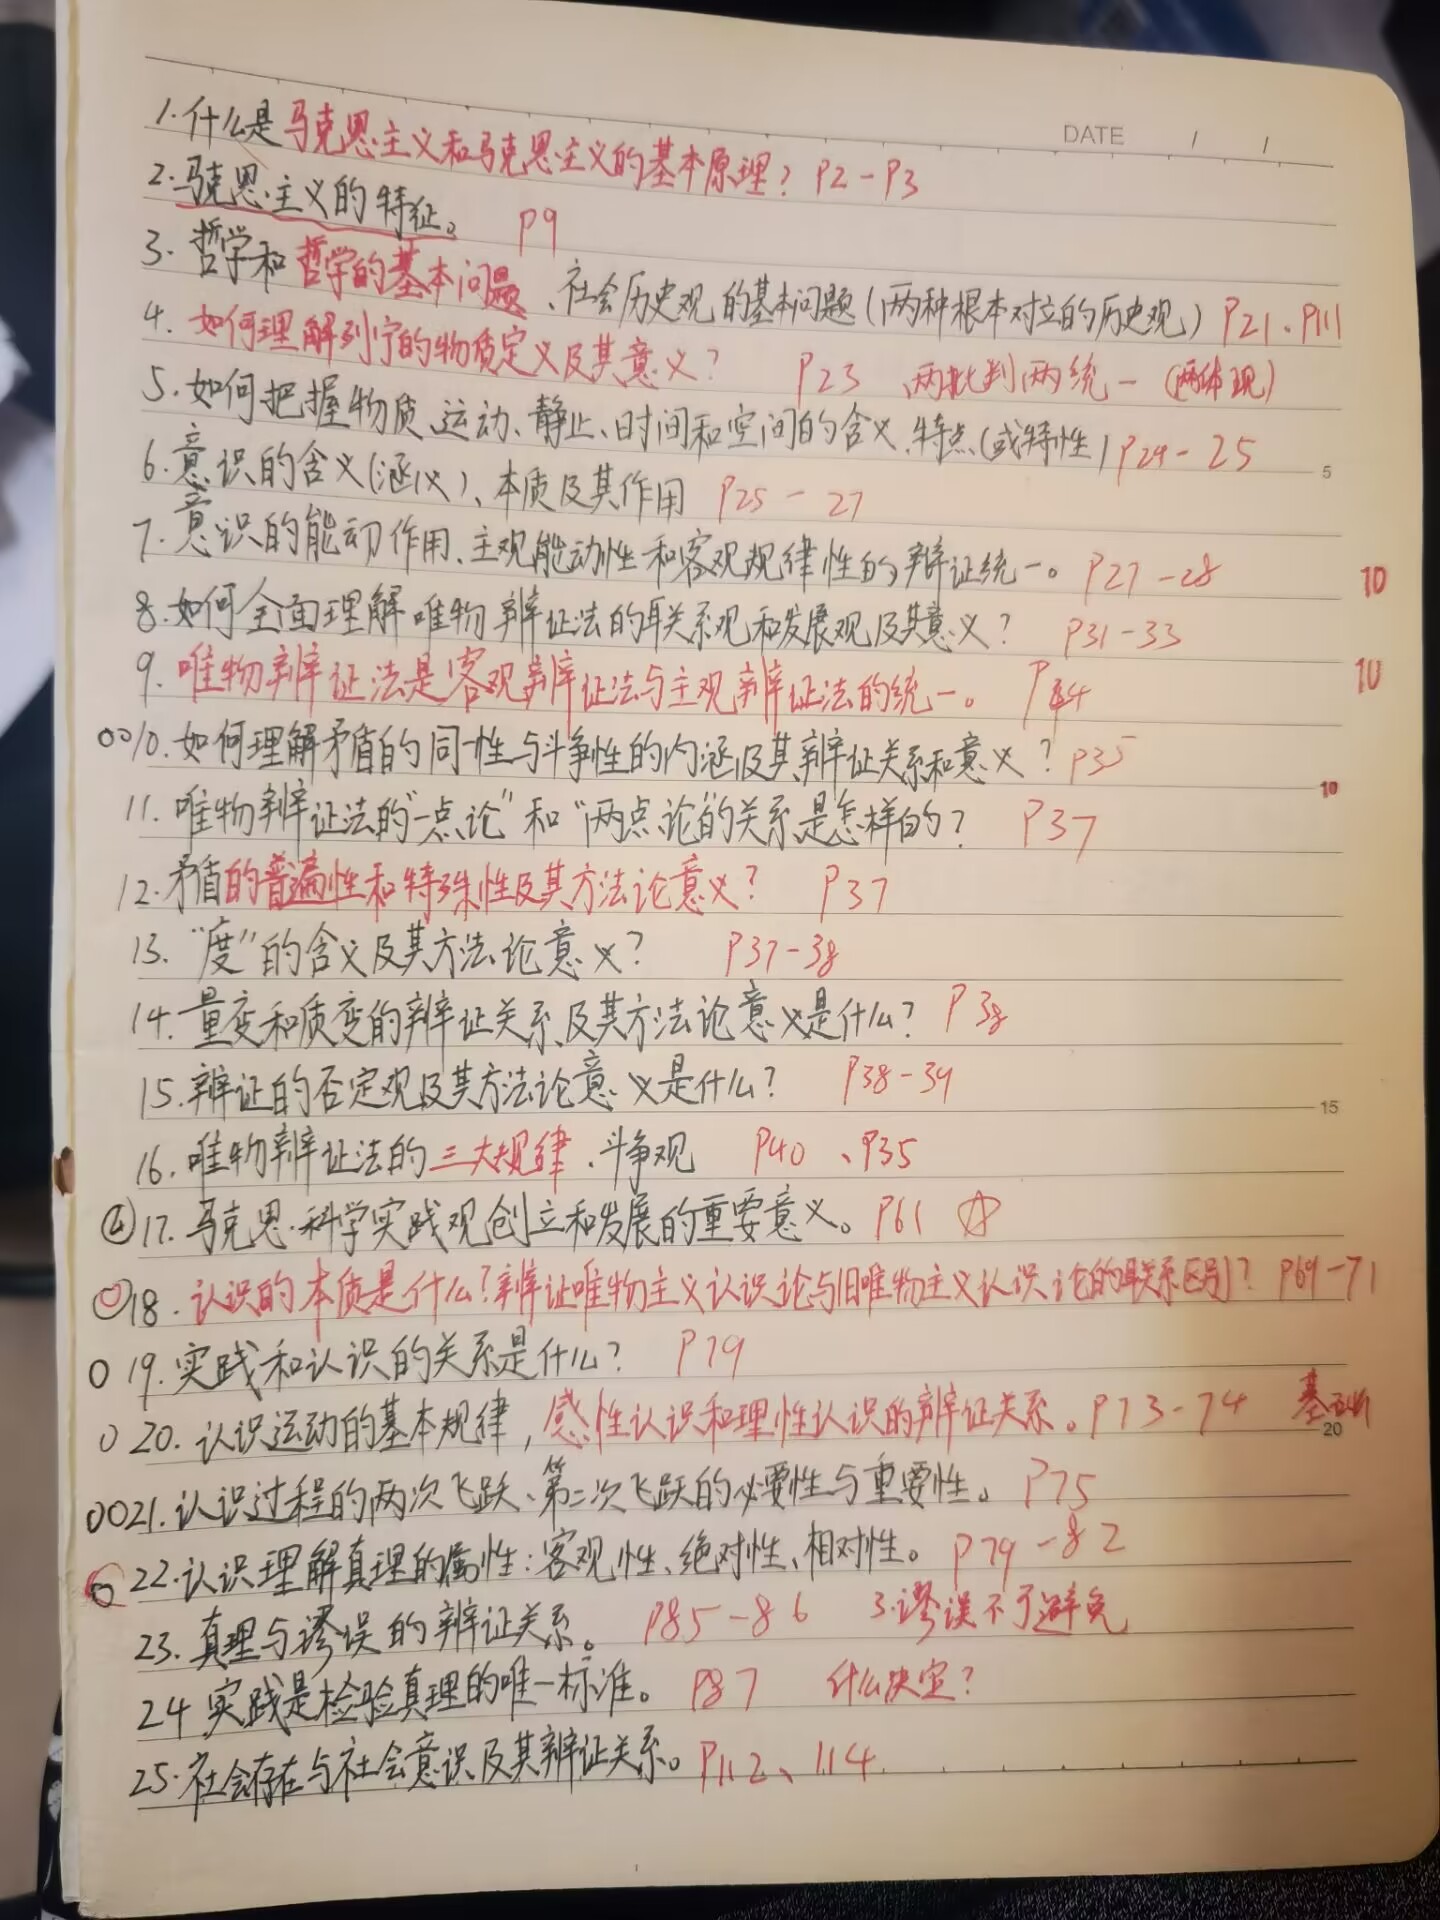 DATE / /
1.什么是马克思主义和马克思主义的基本原理? P2-P3
2.马克思主义的特征。 P9
3.哲学和哲学的基本问题、社会历史观的基本问题(两种根本对立的历史观) P21、P111
4.如何理解列宁的物质定义及其意义? P23 两批判两统一(两体现)
5.如何把握物质、运动、静止、时间和空间的含义、特点(或特性) P24-25
5
6.意识的含义(涵义)、本质及其作用 P25-27
7.意识的能动作用、主观能动性和客观规律性的辩证统一。 P27-28
10
8.如何全面理解唯物辩证法的联系观和发展观及其意义? P31-33
9.唯物辩证法是客观辩证法与主观辩证法的统一。 P44
10
0010.如何理解矛盾的同一性与斗争性的内涵及其辩证关系和意义? P35
10
11.唯物辩证法的"一点论"和"两点论"的关系是怎样的? P37
12.矛盾的普遍性和特殊性及其方法论意义? P37
13."度"的含义及其方法论意义? P37-38
14.量变和质变的辩证关系及其方法论意义是什么? P38
15.辩证的否定观及其方法论意义是什么? P38-39
15
16.唯物辩证法的三大规律、斗争观 P40、P35
17.马克思·科学实践观创立和发展的重要意义。 P61 ☆
18.认识的本质是什么?辩证唯物主义认识论与旧唯物主义认识论的联系区别? P69-71
0 19.实践和认识的关系是什么? P79
0 20.认识运动的基本规律,感性认识和理性认识的辩证关系。P73-74
20
0021.认识过程的两次飞跃、第二次飞跃的必要性与重要性。 P75
0 22.认识理解真理的属性:客观性、绝对性、相对性。 P79-82
23.真理与谬误的辩证关系。 P85-86 3.谬误不可避免
24.实践是检验真理的唯一标准。 P87 什么决定?
25.社会存在与社会意识及其辩证关系。P112、114